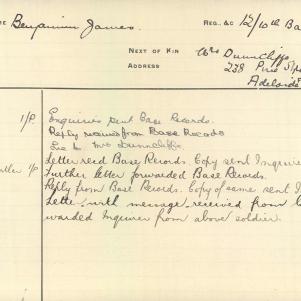 ME Benjamin James. REG. &C 12/10th Ba
NEXT OF KIN Mrs Dunncliffe
ADDRESS 238 Pirie St
Adelaide
1/P. Enquiries sent Base Records.
Reply received from Base Records
See L. Mrs Dunncliffe
Letter recd Base Records. Copy sent Inquire
Further letter forwarded Base Records.
Reply from Base Records. Copy of same sent I
Letter, with message, received from
warded Inquirer from above soldier.